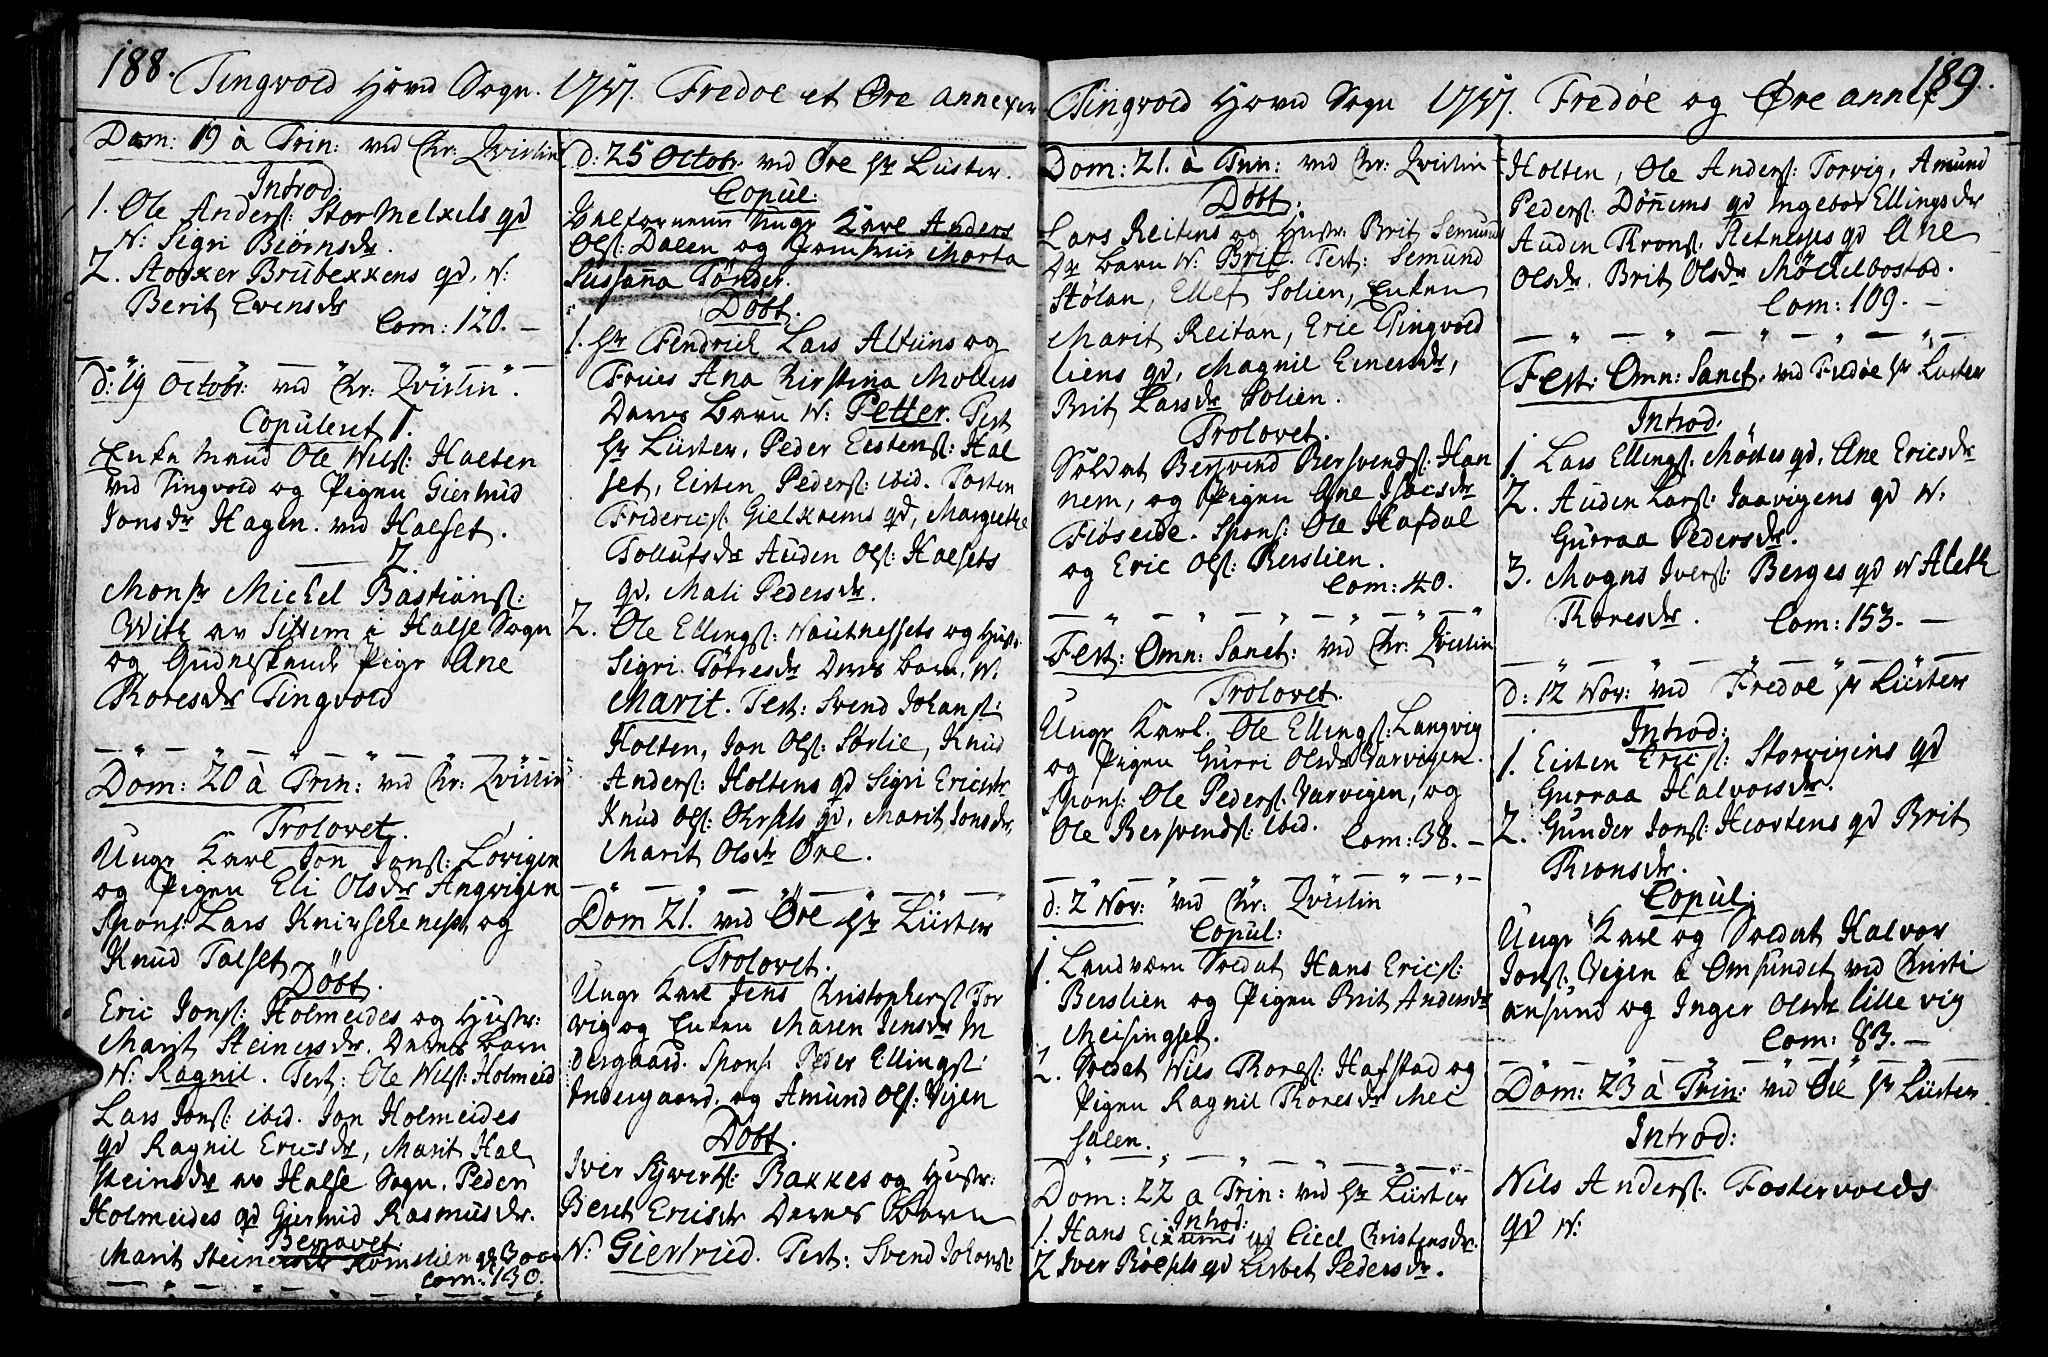 188. Tingvold Hoved Sogn. 1747. Fredöe et Øre annexer
Dom: 19 à Trin: ved Chr: Qvislin
Introd:
1. Ole Anders: StorMelkels qd
N: Sigri Biørnsdr.
2. Stokker Brubekkens qd, N:
Berit Evensdr
Com: 120. —
d: 19 Octobr: ved Chr: Qvislin.
Copuleret 1.
Enke Mand Ole Nils: Holten
ved Tingvold og Pigen Giertrud
Jonsdr Hagen. ved Halset.
2.
Monsr Michel Bastians:
With av Sittem i Halse Sogn
og Gudneskende Pige Ane
Thoresdr Tingvold
Dom: 20 à Trin: ved Chr: Qvislin
Trolovet.
Unge Karl Jon Jons: Lövigen
og Pigen Eli Olsdr Angvigen
Spons: Lars Knirschenest og
Knud Talset
Döbt.
Eric Jons: Holmeides og Hustr:
Marit Steinersdr. Deres barn
N: Ragnil. Test: Ole Nils: Holmeid
Lars Jons: ibid. Jon Holmeides
qd Ragnil Ericsdr, Marit Hal
steinsdr av Halse Sogn. Peder
Holmeides qd Giertrud Rasmusdr.
Begravet.
Marit Steinersdr
Com: 130.
d: 25 Octobr. ved Øre Hr Lüster.
Copul:
Unge Karl Anders
Ols: Dalen og Jomfrue Marta
Susanna Tønder.
Döbt.
1. Hr Fendrich Lars Altuns og
Frues Ana Kirstina Mollers
Deres Barn N: Petter. Test
Hr Lüster, Peder Eistens: Hal
set, Eisten Peders: ibid. Tosten
Friderics: Gielkrems qd, Margrethe
Tollufsdr Auden Ols: Halsets
qd, Mali Pedersdr.
2. Ole Ellings: Nautnessets og Hust:
Sigri Torresdr Deres barn. N.
Marit. Test: Svend Johans:
Holten, Jon Ols: Sørlie, Knud
Anders: Holtens qd Sigri Ericsdr
Knud Ols: qd, Marit Jonsdr,
Marit Olsdr Øre.
Dom 21. ved Øre Hr Lüster
Trolovet.
Unge Karl Jens Christophers Tor
vig og Enken Maren Jensdr In
dergaard. Spons: Peder Ellings:
Indergaard. og Amund Ols: Vejen
Döbt.
Iver Syverts: Bakkes og Hustr:
Beret Ericsdr Deres Barn
N: Giertrued. Test: Svend Johans:
Tingvold Hoved Sogn 1747. Fredöe og Øre annex 189.
Dom: 21. à Trin: ved Chr: Qvislin
Döbt.
Lars Reitens og Hustr: Brit Semunds
Dr barn N: Brit. Test: Semund
Stölan, Ellef Solien, Enken
Marit Reitan, Eric Tingvold
liens qd, Magnil Einersdr,
Brit Larsdr Solien.
Trolovet.
Soldat Bersvend Bersvends: Han
nem, og Pigen Ane Isacsdr
Fiöseide. Spons: Ole Hafdal
og Eric Ols: Berslien.
Com: 40.
Fest: Omn: Sanct: ved Chr: Qvislin
Trolovet.
Unge Karl. Ole Ellings: Langvig
og Pigen Gurri Olsdr Varvigen.
Spons: Ole Peders: Varvigen, og
Ole Bersvends: ibid. Com: 38. —
d: 2 Nov: ved Chr: Qvislin
Copul:
1. Landværn Soldat Hans Erics:
Berslien og Pigen Brit Andersdr
Meisingset.
2. Soldat Nils Thores: Hafstad og
Pigen Ragnil Thoresdr Mei
salen.
Dom: 22 a Trin: ved Hr Lüster
Introd:
1. Hans qd Cicel Christensdr.
2 Iver qd Lisbet Pedersdr.
Holten, Ole Anders: Torvig, Amund
Peders: Dönnems qd Ingebor Ellingsdr
Auden Trons: Aetnesses qd Ane
Olsdr. Brit Olsdr Möckelbostad.
Com: 109. —
Fest: Omn: Sanct. ved Fredöe Hr Luster
Introd.
1. Lars Ellings: Möstes qd, Ane Ericsdr
2. Auden Lars: Jaavigens qd N:
Gurraa Pedersdr.
3. Mogns Ivers: Berges qd N Aleth
Thoresdr. Com: 153. —
d: 12 Nov: ved Fredöe Hr Lüster
Introd:
1. Eisten Erics: Storvigins qd
Gurraa Halvorsdr.
2. Gunder Jons: Hiortens qd Brit
Thronsdr.
Copul:
Unge Karl og Soldat Halvor
Jons: Vejen a Omsundet ved Christi
ansund og Inger Olsdr Lille vig
Com: 83. —
Dom: 23 à Trin: ved Øre Hr Lüster.
Introd:
Nils Anders: Fostervolds
qd N: